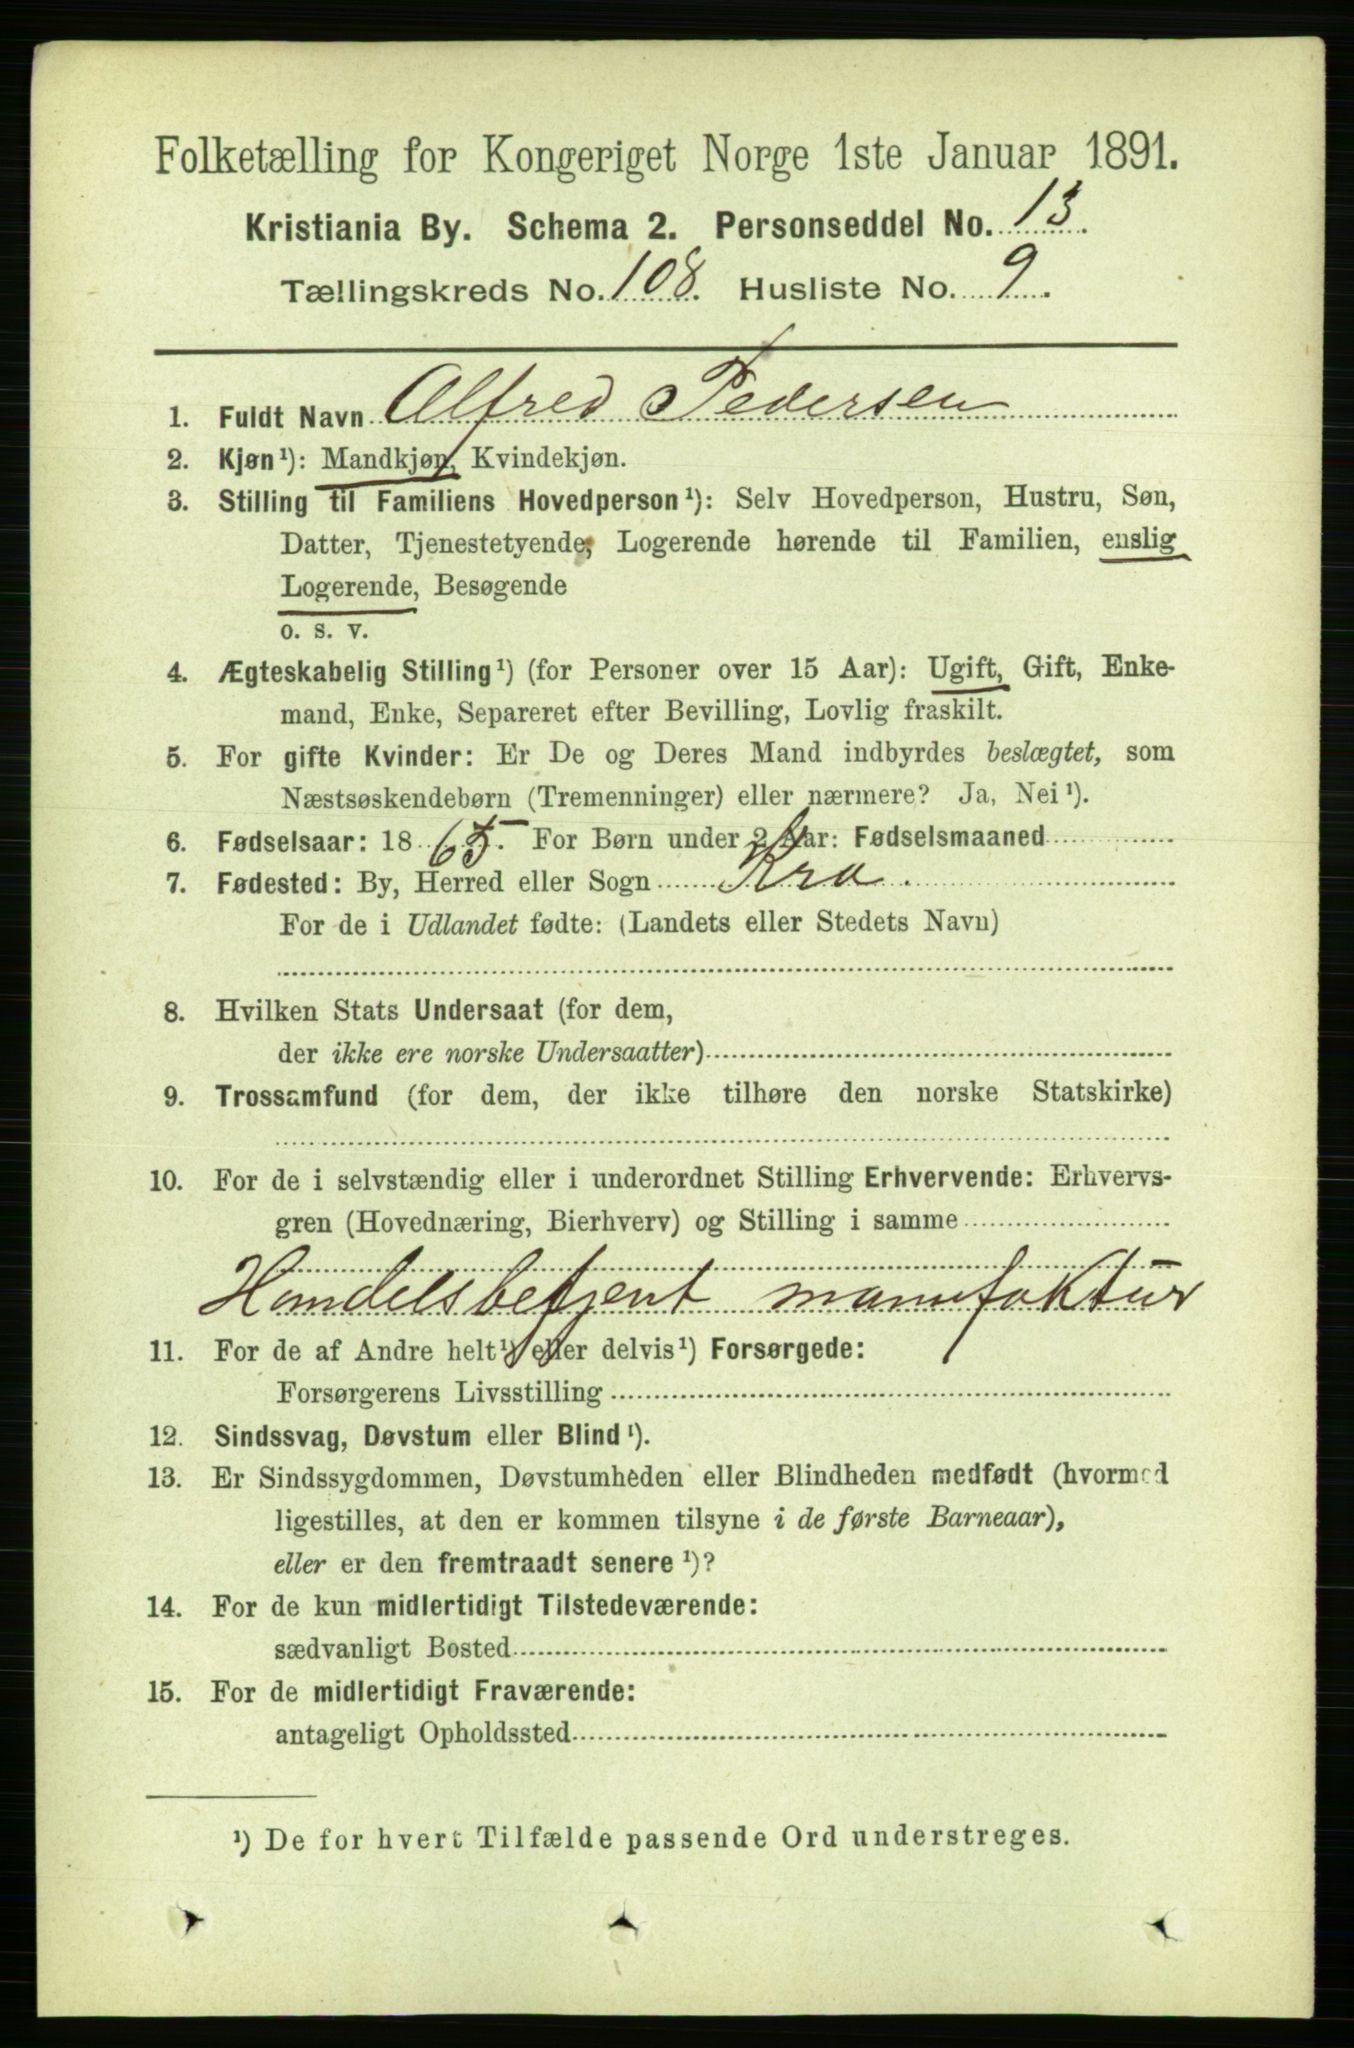 Folketælling for Kongeriget Norge 1ste Januar 1891.
Kristiania By. Schema 2. Personseddel No. 13.
Tællingskreds No. 108. Husliste No. 9.
1. Fuldt Navn Alfred Pedersen
2. Kjøn¹): Mandkjøn, Kvindekjøn.
3. Stilling til Familiens Hovedperson¹): Selv Hovedperson, Hustru, Søn,
Datter, Tjenestetyende, Logerende hørende til Familien, enslig
Logerende, Besøgende
o. s. v.
4. Ægteskabelig Stilling¹) (for Personer over 15 Aar): Ugift, Gift, Enke-
mand, Enke, Separeret efter Bevilling, Lovlig fraskilt.
5. For gifte Kvinder: Er De og Deres Mand indbyrdes beslægtet, som
Næstsøskendebørn (Tremenninger) eller nærmere? Ja, Nei¹).
6. Fødselsaar: 1865. For Børn under 2 Aar: Fødselsmaaned
7. Fødested: By, Herred eller Sogn Kra.
For de i Udlandet fødte: (Landets eller Stedets Navn)
8. Hvilken Stats Undersaat (for dem,
der ikke ere norske Undersaatter)
9. Trossamfund (for dem, der ikke tilhøre den norske Statskirke)
10. For de i selvstændig eller i underordnet Stilling Erhvervende: Erhvervs-
gren (Hovednæring, Bierhverv) og Stilling i samme
Handelsbetjent manufaktur
11. For de af Andre helt¹) eller delvis¹) Forsørgede:
Forsørgerens Livsstilling
12. Sindssvag, Døvstum eller Blind¹).
13. Er Sindssygdommen, Døvstumheden eller Blindheden medfødt (hvormed
ligestilles, at den er kommen tilsyne i de første Barneaar),
eller er den fremtraadt senere¹)?
14. For de kun midlertidigt Tilstedeværende:
sædvanligt Bosted
15. For de midlertidigt Fraværende:
antageligt Opholdssted
¹) De for hvert Tilfælde passende Ord understreges.